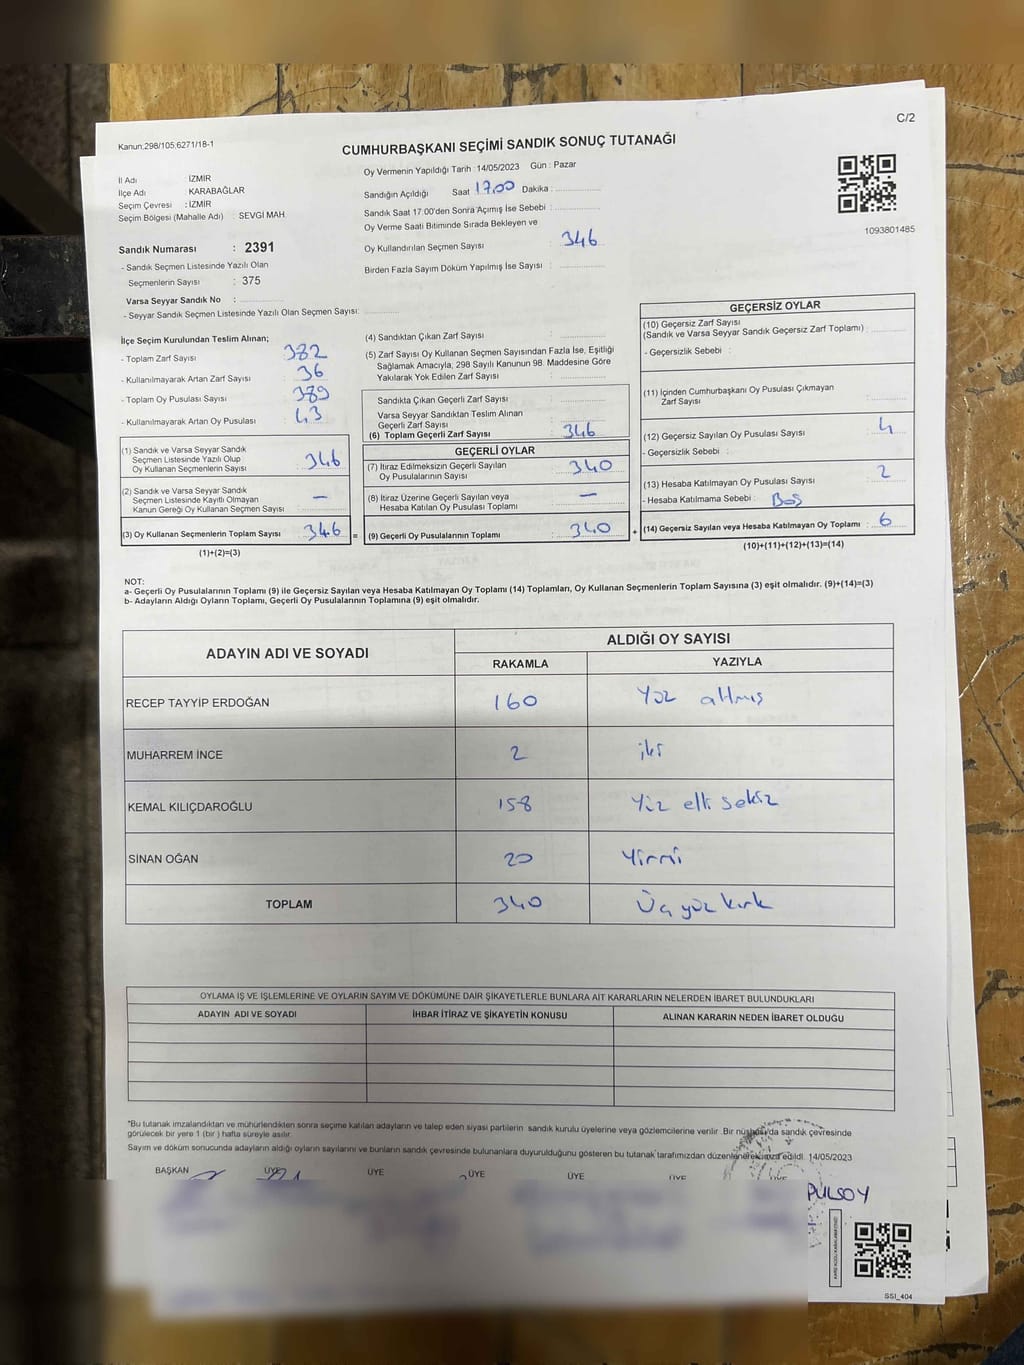 C/2
Kanun.298/105;6271/18-1
CUMHURBAŞKANI SEÇİMİ SANDIK SONUÇ TUTANAĞI
İl Adı : İZMİR
İlçe Adı : KARABAĞLAR
Seçim Çevresi : İZMİR
Seçim Bölgesi (Mahalle Adı) : SEVGİ MAH.
Sandık Numarası : 2391
- Sandık Seçmen Listesinde Yazılı Olan
Seçmenlerin Sayısı : 375
Varsa Seyyar Sandık No :
- Seyyar Sandık Seçmen Listesinde Yazılı Olan Seçmen Sayısı:
Oy Vermenin Yapıldığı Tarih : 14/05/2023 Gün : Pazar
Sandığın Açıldığı Saat 17.00 Dakika :
Sandık Saat 17:00'den Sonra Açımış İse Sebebi :
Oy Verme Saati Bitiminde Sırada Bekleyen ve
Oy Kullandırılan Seçmen Sayısı : 346
Birden Fazla Sayım Döküm Yapılmış İse Sayısı :
1093801485
İlçe Seçim Kurulundan Teslim Alınan;
- Toplam Zarf Sayısı : 382
- Kullanılmayarak Artan Zarf Sayısı : 36
- Toplam Oy Pusulası Sayısı : 389
- Kullanılmayarak Artan Oy Pusulası : 43
(1) Sandık ve Varsa Seyyar Sandık
Seçmen Listesinde Yazılı Olup
Oy Kullanan Seçmenlerin Sayısı : 346
(2) Sandık ve Varsa Seyyar Sandık
Seçmen Listesinde Kayıtlı Olmayan
Kanun Gereği Oy Kullanan Seçmen Sayısı : —
(3) Oy Kullanan Seçmenlerin Toplam Sayısı : 346 =
(1)+(2)=(3)
(4) Sandıktan Çıkan Zarf Sayısı :
(5) Zarf Sayısı Oy Kullanan Seçmen Sayısından Fazla İse, Eşitliği
Sağlamak Amacıyla, 298 Sayılı Kanunun 98. Maddesine Göre
Yakılarak Yok Edilen Zarf Sayısı :
Sandıkta Çıkan Geçerli Zarf Sayısı :
Varsa Seyyar Sandıktan Teslim Alınan
Geçerli Zarf Sayısı :
(6) Toplam Geçerli Zarf Sayısı : 346
GEÇERLİ OYLAR
(7) İtiraz Edilmeksizin Geçerli Sayılan
Oy Pusulalarının Sayısı : 340
(8) İtiraz Üzerine Geçerli Sayılan veya
Hesaba Katılan Oy Pusulası Toplamı : —
(9) Geçerli Oy Pusulalarının Toplamı : 340 +
GEÇERSİZ OYLAR
(10) Geçersiz Zarf Sayısı
(Sandık ve Varsa Seyyar Sandık Geçersiz Zarf Toplamı) :
- Geçersizlik Sebebi :
(11) İçinden Cumhurbaşkanı Oy Pusulası Çıkmayan
Zarf Sayısı :
(12) Geçersiz Sayılan Oy Pusulası Sayısı : 4
- Geçersizlik Sebebi :
(13) Hesaba Katılmayan Oy Pusulası Sayısı : 2
- Hesaba Katılmama Sebebi : Boş
(14) Geçersiz Sayılan veya Hesaba Katılmayan Oy Toplamı : 6
(10)+(11)+(12)+(13)=(14)
NOT:
a- Geçerli Oy Pusulalarının Toplamı (9) ile Geçersiz Sayılan veya Hesaba Katılmayan Oy Toplamı (14) Toplamları, Oy Kullanan Seçmenlerin Toplam Sayısına (3) eşit olmalıdır. (9)+(14)=(3)
b- Adayların Aldığı Oyların Toplamı, Geçerli Oy Pusulalarının Toplamına (9) eşit olmalıdır.
ADAYIN ADI VE SOYADI
ALDIĞI OY SAYISI
RAKAMLA YAZIYLA
RECEP TAYYİP ERDOĞAN 160 Yüz altmış
MUHARREM İNCE 2 iki
KEMAL KILIÇDAROĞLU 158 Yüz elli sekiz
SİNAN OĞAN 20 Yirmi
TOPLAM 340 Üç yüz kırk
OYLAMA İŞ VE İŞLEMLERİNE VE OYLARIN SAYIM VE DÖKÜMÜNE DAİR ŞİKAYETLERLE BUNLARA AİT KARARLARIN NELERDEN İBARET BULUNDUKLARI
ADAYIN ADI VE SOYADI İHBAR İTİRAZ VE ŞİKAYETİN KONUSU ALINAN KARARIN NEDEN İBARET OLDUĞU
*Bu tutanak imzalandıktan ve mühürlendikten sonra seçime katılan adayların ve talep eden siyasi partilerin sandık kurulu üyelerine veya gözlemcilerine verilir. Bir nüshası da sandık çevresinde
görülecek bir yere 1 (bir) hafta süreyle asılır.
Sayım ve döküm sonucunda adayların aldığı oyların sayılarını ve bunların sandık çevresinde bulunanlara duyurulduğunu gösteren bu tutanak tarafımızdan düzenlenerek imza edildi. 14/05/2023
BAŞKAN ÜYE ÜYE ÜYE ÜYE ÜYE ÜYE
PULSOY
SSİ_404